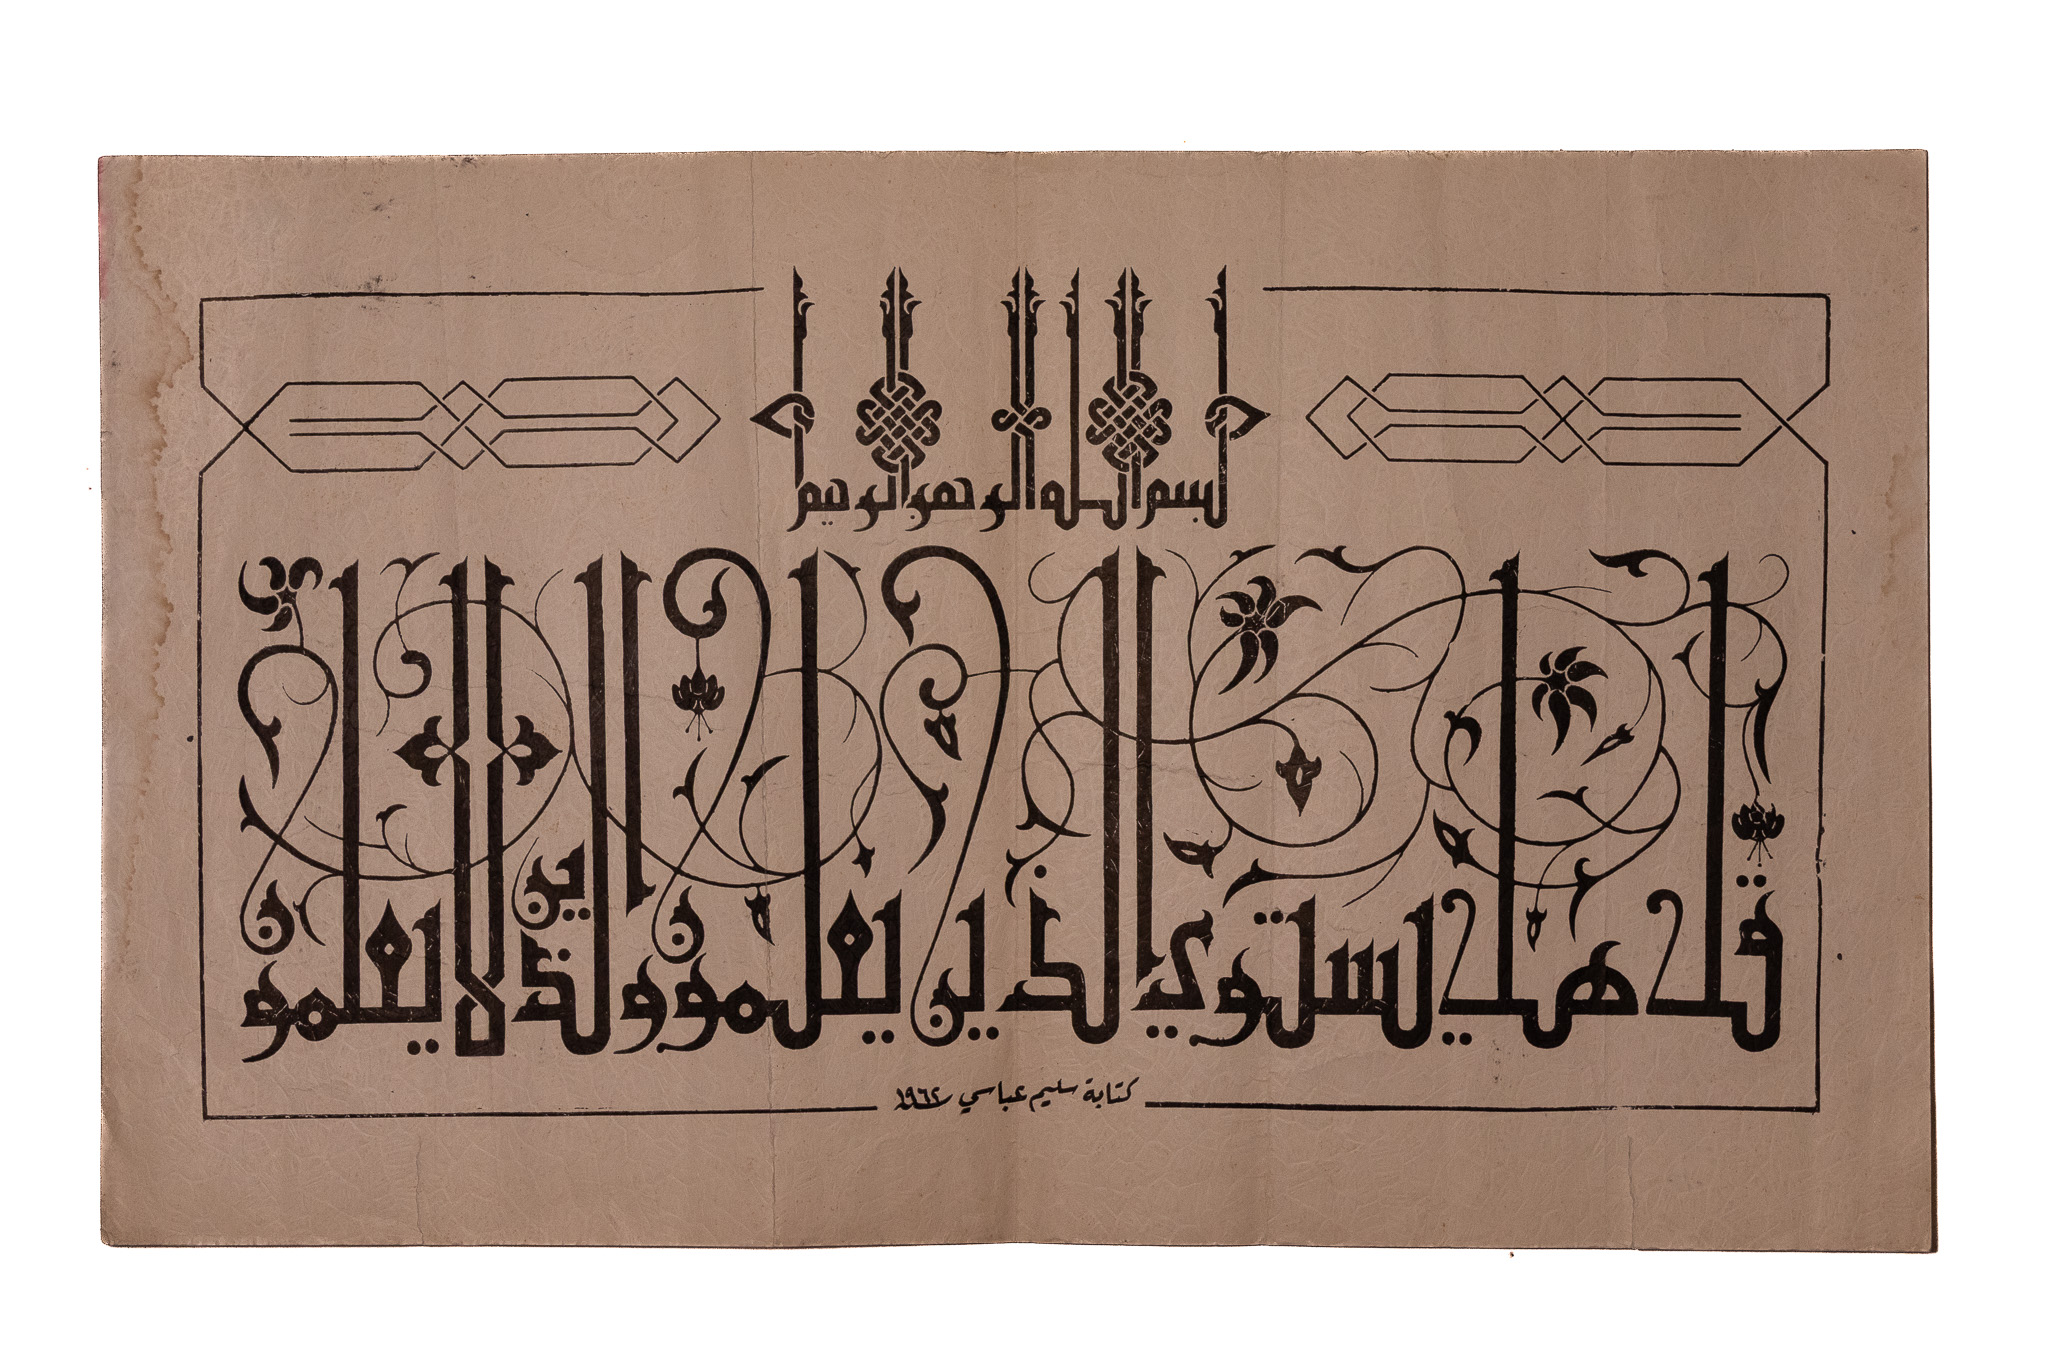 بسم الله الرحمن الرحيم
قل هل يستوي الذين يعلمون والذين لا يعلمون
كتابة سليم عباسي ١٩٦٢